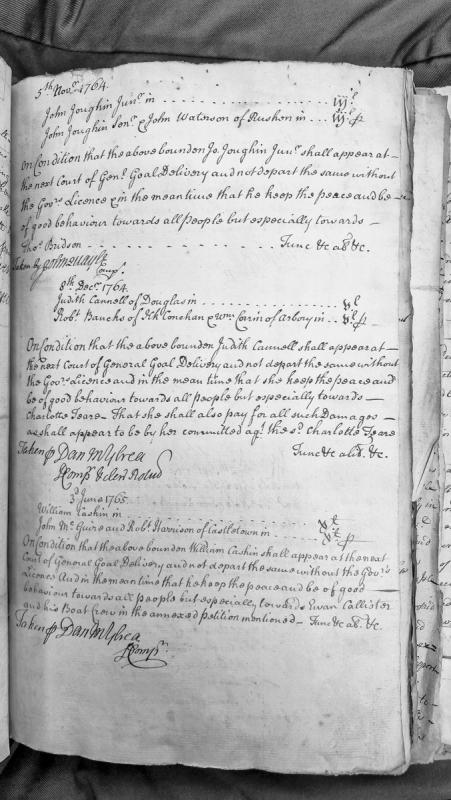 5th Novr. 1764.
John Joughin Junr. in . . . . . . . . . . . . iijl
John Joughin Senr. & John Waterson of Rushen in . . . iijl p
On Condition that the above bounden Jo. Joughin Junr. shall appear at
the next Court of Genl. Goal Delivery and not depart the same without
the Govrs. Licence & in the mean time that he keep the peace and be
of good behaviour towards all People but especially towards
Tho. Bridson . . . . . . . . . . . Tunc &c abd. &c.
Taken by
Compr.
8th. Decr. 1764.
Judith Cannell of Douglas in . . . . . . . . . . vl
Robt. Bancks of Kk Conchan & Wm. Corrin of Arbory in . . vl p
On Condition that the above bounden Judith Cannell shall appear at
the next Court of General Goal Delivery and not depart the same without
the Govrs. Licence and in the mean time that she keep the peace and
be of good behaviour towards all people but especially towards
Charlotte Teare. That she shall also pay for all such Damages
as shall appear to be by her committed agt. the sd. Charlotte Teare
Tunc &c abd. &c.
Taken p Dan Mylrea
Compr. & Cler Rolor
3d June 1765.
William Cashin in . . . . . . . . . . . xl
John Mc.Guire and Robt. Harrison of Castletown in . . . xl p
On Condition that the above bounden William Cashin shall appear at the next
Court of General Goal Delivery and not depart the same without the Govrs.
Licence And in the mean time that he keep the peace and be of good
behaviour towards all people but especially towards Ewan Callister
and his Boat Crew in the annexed petition mentioned - Tunc &c ab. &c.
Taken p Dan Mylrea
Compr.